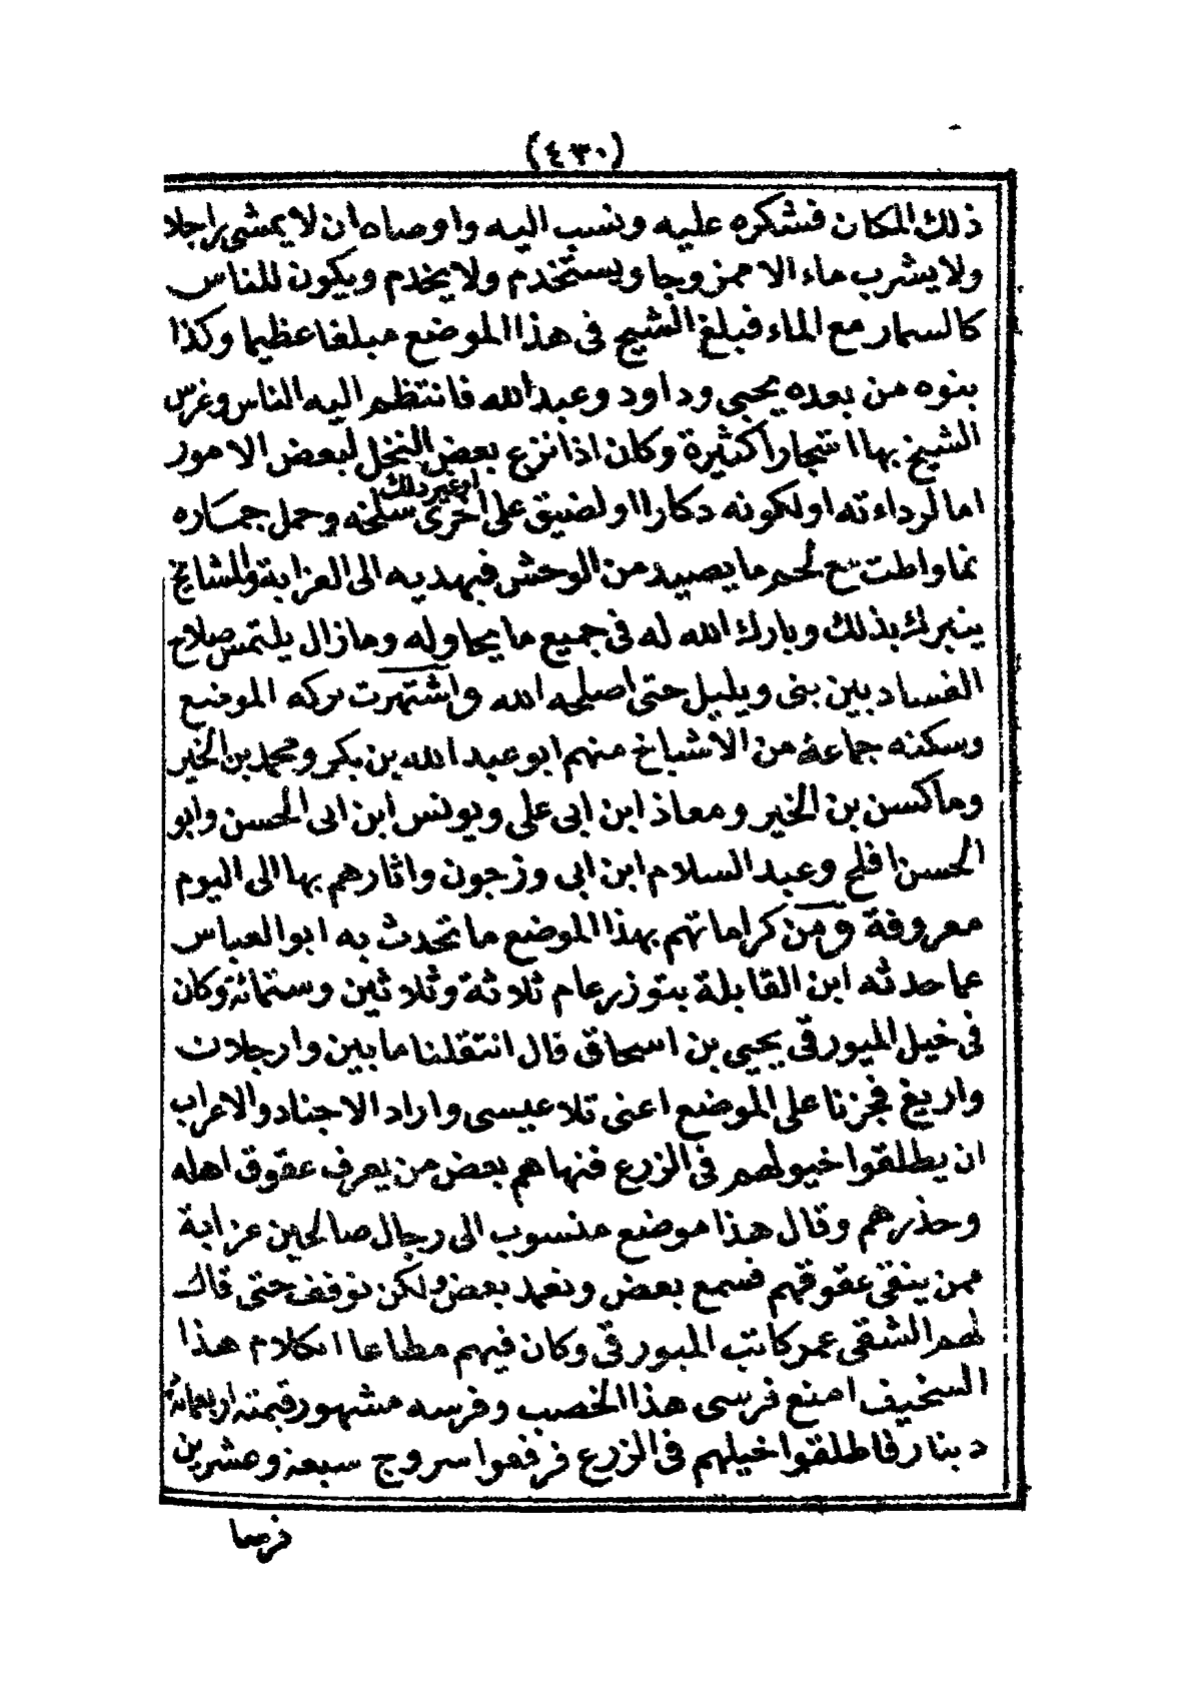 (٤٣٠)
ذلك المكان فشكره عليه ونسب اليه واوصاه ان لا يمشي راجلا
ولا يشرب ماء الا ممزوجا ويستخدم ولا يخدم ويكون للناس
كالسمار مع الماء فبلغ الشيخ في هذا الموضع مبلغا عظيما وكذا
بنوه من بعده يحيى وداود وعبد الله فانتظم اليه الناس وغرس
الشيخ بها اشجارا كثيرة وكان اذا نزع بعض النخل لبعض الامور
اما لرداءته او لكونه دكارا او لضيق على اخرى او غير ذلك سلخه وحمل جماره
نما واطت مع لحم ما يصيد من الوحش فيهديه الى العزابة والمشايخ
يتبرك بذلك وبارك الله له في جميع ما يحاوله وما زال يلتمس صلاح
الفساد بين بني ويليل حتى اصلحه الله واشتهرت بركه الموضع
وسكنه جماعة من الاشياخ منهم ابو عبد الله بن بكر ومحمد بن الخير
وماكسن بن الخير ومعاذ ابن ابي علي ويونس ابن ابي الحسن وابو
الحسن افلح وعبد السلام ابن ابي وزجون واثارهم بها الى اليوم
معروفة ومن كراماتهم بهذا الموضع ما تحدث به ابو العباس
عما حدثه ابن القابلة بتوزر عام ثلاثة وثلاثين وستمائة وكان
في خيل الميورقي يحيى بن اسحاق قال انتقلنا ما بين وارجلان
واريغ فجزنا على الموضع اعني تلا عيسى واراد الاجناد والاعراب
ان يطلقوا خيولهم في الزرع فنهاهم بعض من يعرف عقوق اهله
وحذرهم وقال هذا موضع منسوب الى رجال صالحين عزابة
ممن يتقى عقوقهم فسمع بعض وتعهد بعض ولكن توقف حتى قال
لهم الشقي عمر كاتب الميورقي وكان فيهم مطاعا الكلام هذا
السخيف امنع فرسي هذا الخصب وفرسه مشهور قيمته اربعمائة
دينار فاطلقوا خيلهم في الزرع فرفعوا سروج سبعة وعشرين
فرسا